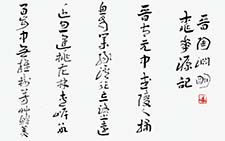 晋陶渊明
桃華源記
晋太元中武陵人捕
魚為業緣溪行忘路之遠
近忽逢桃花林夾岸數
百步中無雜樹芳草鮮美